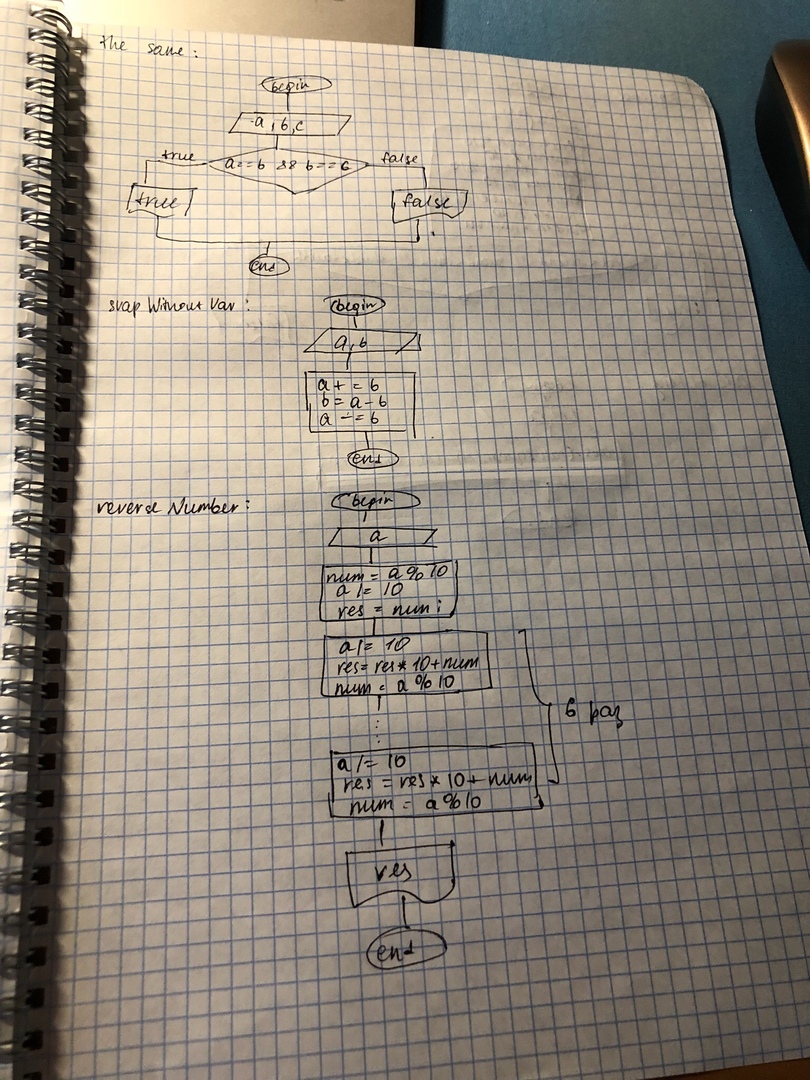 the same:
begin
a, b, c
true
a==b && b==c
false
true
false
end
swap Without Var:
begin
a, b
a += b
b = a - b
a -= b
end
reverse Number:
begin
a
num = a % 10
a /= 10
res = num;
a /= 10
res = res * 10 + num
num = a % 10
6 раз
a /= 10
res = res * 10 + num
num = a % 10
res
end